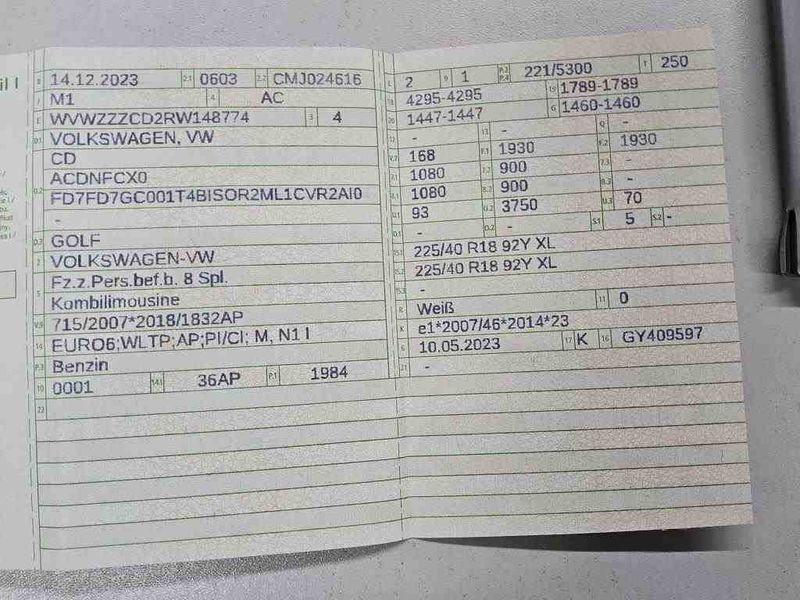 il I
B 14.12.2023 2.1 0603 2.2 CMJ024616
J M1 4 AC
E WVWZZZCD2RW148774 3 4
D.1 VOLKSWAGEN, VW
CD
ACDNFCX0
D.2 FD7FD7GC001T4BISOR2ML1CVR2AI0
-
D.3 GOLF
2 VOLKSWAGEN-VW
Fz.z.Pers.bef.b. 8 Spl.
5 Kombilimousine
V.9 715/2007*2018/1832AP
14 EURO6;WLTP;AP;PI/CI; M, N1 I
P.3 Benzin
10 0001 14.1 36AP P.1 1984
22
L 2 9 1 P.2 P.4 221/5300 T 250
18 4295-4295 19 1789-1789
20 1447-1447 G 1460-1460
12 - 13 - Q -
V.7 168 F.1 1930 F.2 1930
7.1 1080 7.2 900 7.3 -
8.1 1080 8.2 900 8.3 -
U.1 93 U.2 3750 U.3 70
O.1 - O.2 - S.1 5 S.2 -
15.1 225/40 R18 92Y XL
15.2 225/40 R18 92Y XL
15.3 -
R Weiß 11 0
K e1*2007/46*2014*23
6 10.05.2023 17 K 16 GY409597
21 -